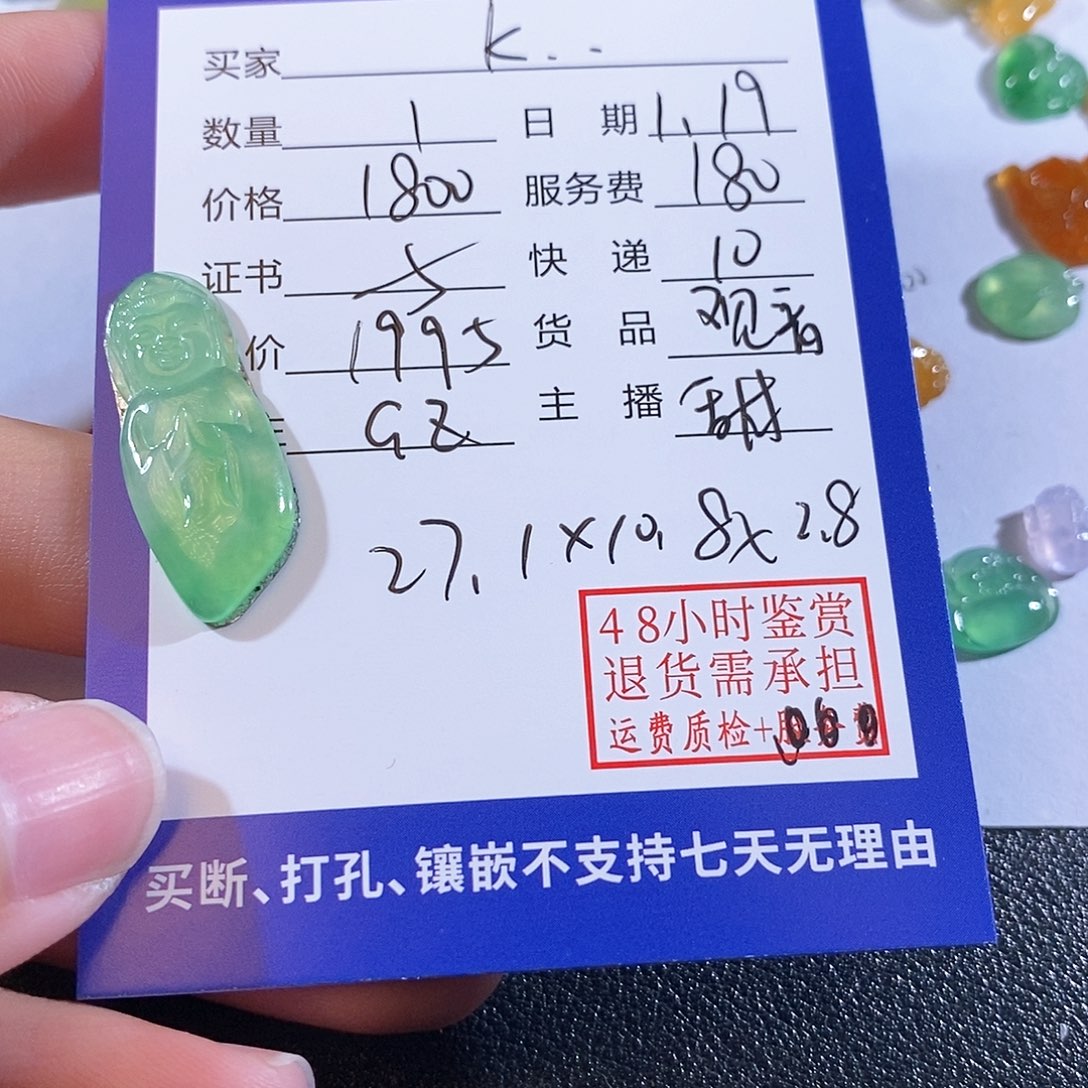 买家 K..
数量 1 日期 1.19
价格 1800 服务费 180
证书 快递 10
价 1995 货品 观音
GZ 主播
27.1×10.8×2.8
48小时鉴赏
退货需承担
运费质检+服务费
买断、打孔、镶嵌不支持七天无理由